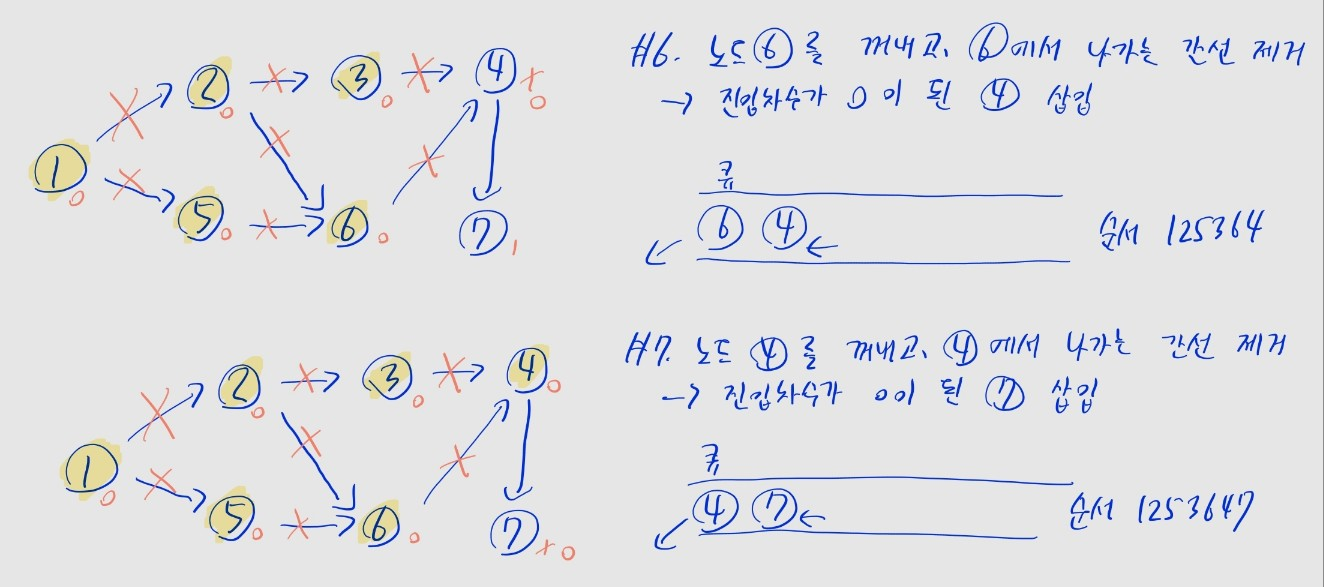 #6. 노드 ⑥를 꺼내고, ⑥에서 나가는 간선 제거
→ 진입차수가 0이 된 ④ 삽입
① 0
② 0
③ 0
④ x 0
⑤ 0
⑥ 0
⑦ 1
큐
⑥ ④ ←
순서 125364
#7. 노드 ④를 꺼내고, ④에서 나가는 간선 제거
→ 진입차수가 0이 된 ⑦ 삽입
① 0
② 0
③ 0
④ 0
⑤ 0
⑥ 0
⑦ x 0
큐
④ ⑦ ←
순서 1253647